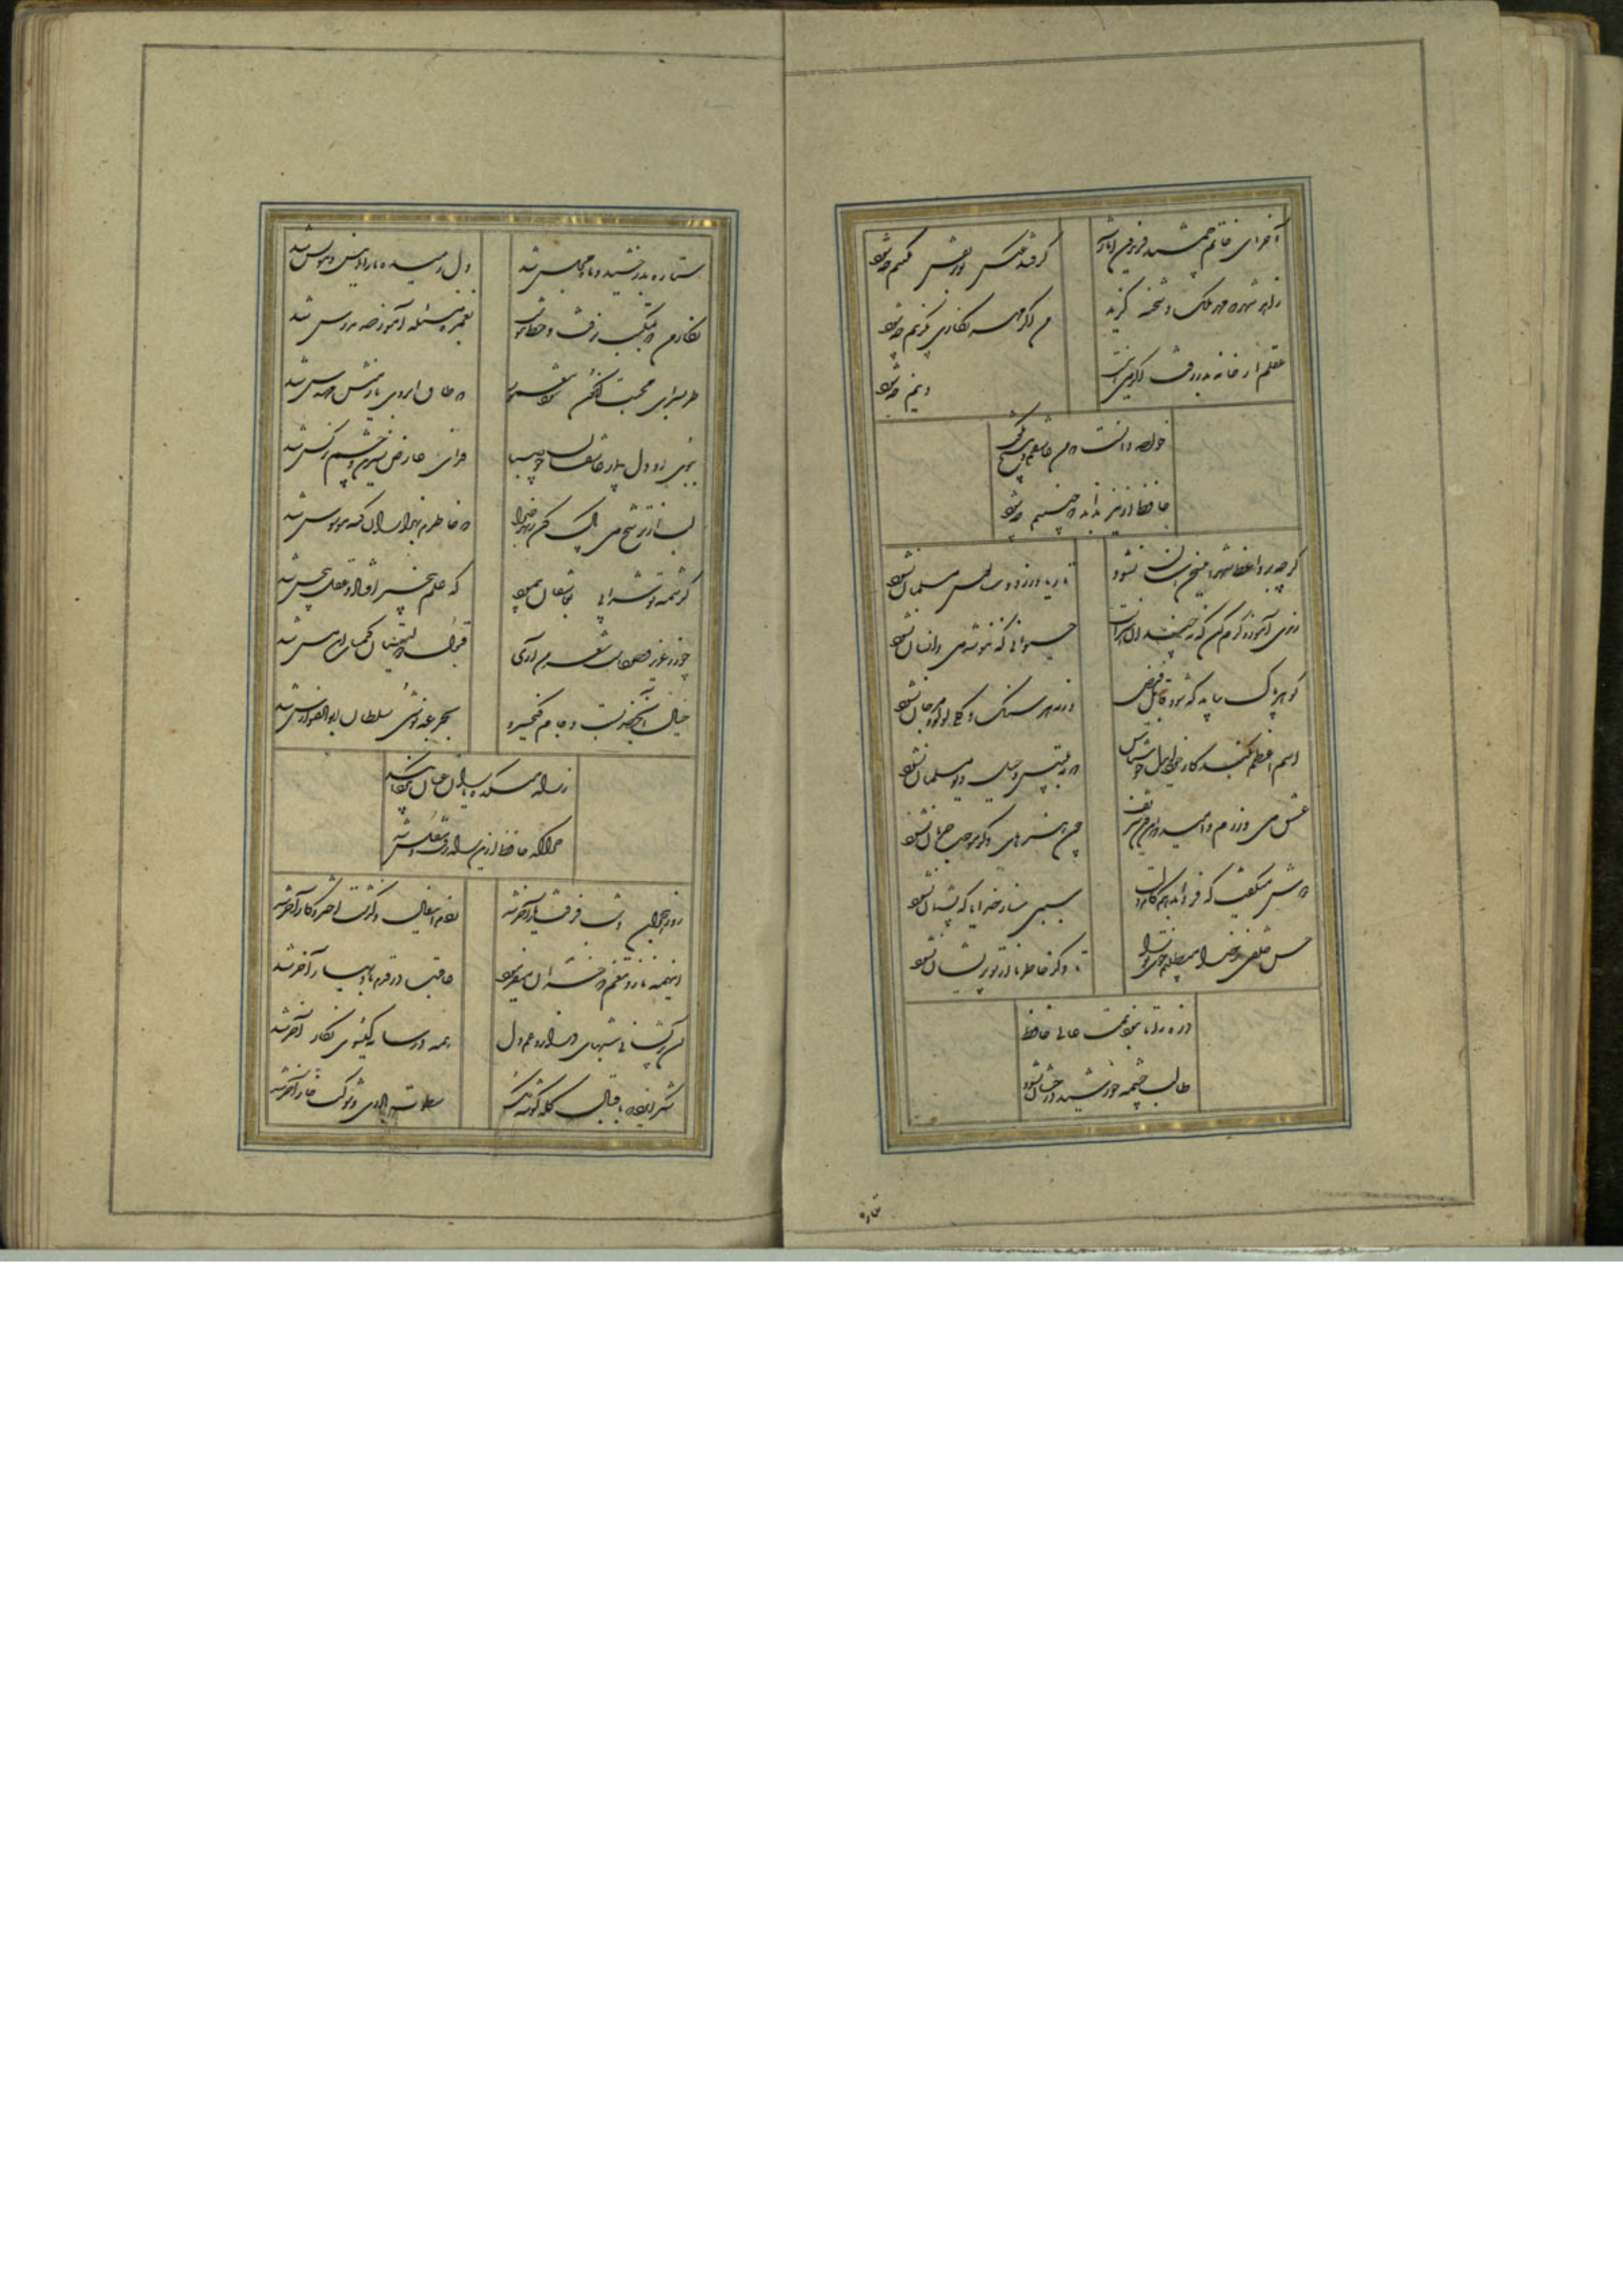 آخر ای خاتم جمشید همایون آثار گر فتد عکس تو بر نقش نگینم چه شود
زاهد شهر چو مهر ملک و شحنه گزید من اگر مهر نگاری بگزینم چه شود
عقلم از خانه بدر رفت اگر می اینست دینم چه شود
خواجه دانست که من عاشقم و هیچ نگفت
حافظ ار نیز بداند که چنینم چه شود
گر چه بر واعظ شهر این سخن آسان نشود تا ریا ورزد و سالوس مسلمان نشود
رندی آموز و کرم کن که نه چندین هنرست حیوانی که ننوشد می و انسان نشود
گوهر پاک بباید که شود قابل فیض ورنه هر سنگ و گلی لولو و مرجان نشود
اسم اعظم بکند کار خود ای دل خوش باش که بتلبیس و حیل دیو مسلمان نشود
عشق می ورزم و امید که این فن شریف چون هنرهای دگر موجب حرمان نشود
دوش میگفت که فردا بدهم کام دلت سببی ساز خدایا که پشیمان نشود
حسن خلقی ز خدا میطلبم خوی ترا تا دگر خاطر ما از تو پریشان نشود
ذره را تا نبود همت عالی حافظ
طالب چشمه خورشید درخشان نشود
ستاره
ستاره بدرخشید و ماه مجلس شد دل رمیده ما را انیس و مونس شد
نگار من که بمکتب نرفت و خط ننوشت بغمزه مسئله آموز صد مدرس شد
طربسرای محبت کنون شود معمور که طاق ابروی یار منش مهندس شد
ببوی او دل بیمار عاشقان چو صبا فدای عارض نسرین و چشم نرگس شد
لب از ترشح می پاک کن برای خدا که خاطرم بهزاران گنه موسوس شد
کرشمه تو شرابی بعاشقان پیمود که علم بیخبر افتاد و عقل بیحس شد
چو زر عزیز وجودست شعر من آری قبول دولتیان کیمیای این مس شد
خیال آب خضر بست و جام کیخسرو بجرعه نوشی سلطان ابوالفوارس شد
ز راه میکده یاران عنان بگردانید
چرا که حافظ ازین راه رفت و مفلس شد
روز هجران و شب فرقت یار آخر شد زدم این فال و گذشت اختر و کار آخر شد
آن همه ناز و تنعم که خزان میفرمود عاقبت در قدم باد بهار آخر شد
آن پریشانی شبهای دراز و غم دل همه در سایه گیسوی نگار آخر شد
شکر ایزد که باقبال کله گوشه گل نخوت باد دی و شوکت خار آخر شد